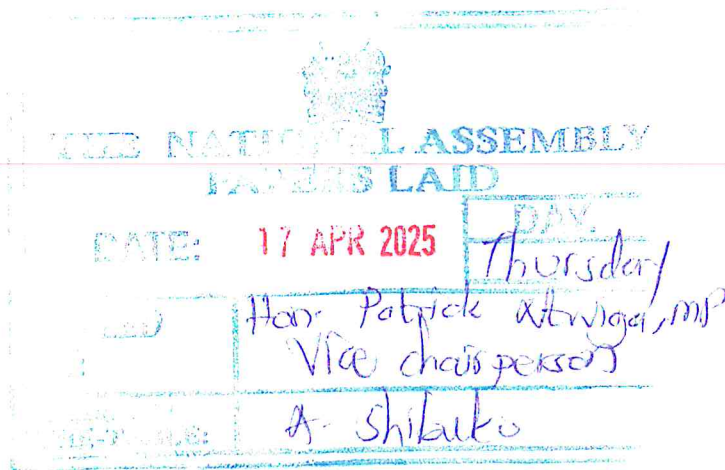 THE NATIONAL ASSEMBLY
PAPERS LAID
DATE: 17 APR 2025
DAY.
Thursday
Hon. Patrick MP
Vice chairperson
A. Shibuko